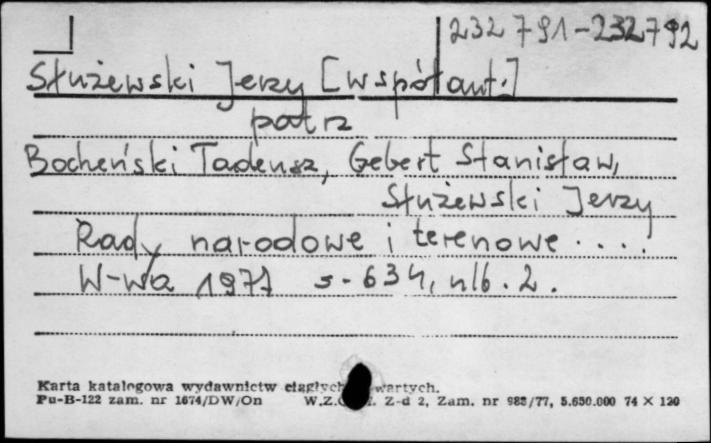 232 791-232792
Służewski Jerzy [współaut.]
patrz
Bocheński Tadeusz, Gebert Stanisław,
Służewski Jerzy
Rady narodowe i terenowe ....
W-wa 1977 s. 634, nlb. 2.
Karta katalogowa wydawnictw ciągłych wartych.
Pu-B-122 zam. nr 1674/DW/On W.Z. Z-d 2, Zam. nr 988/77, 5.650.000 74 X 120